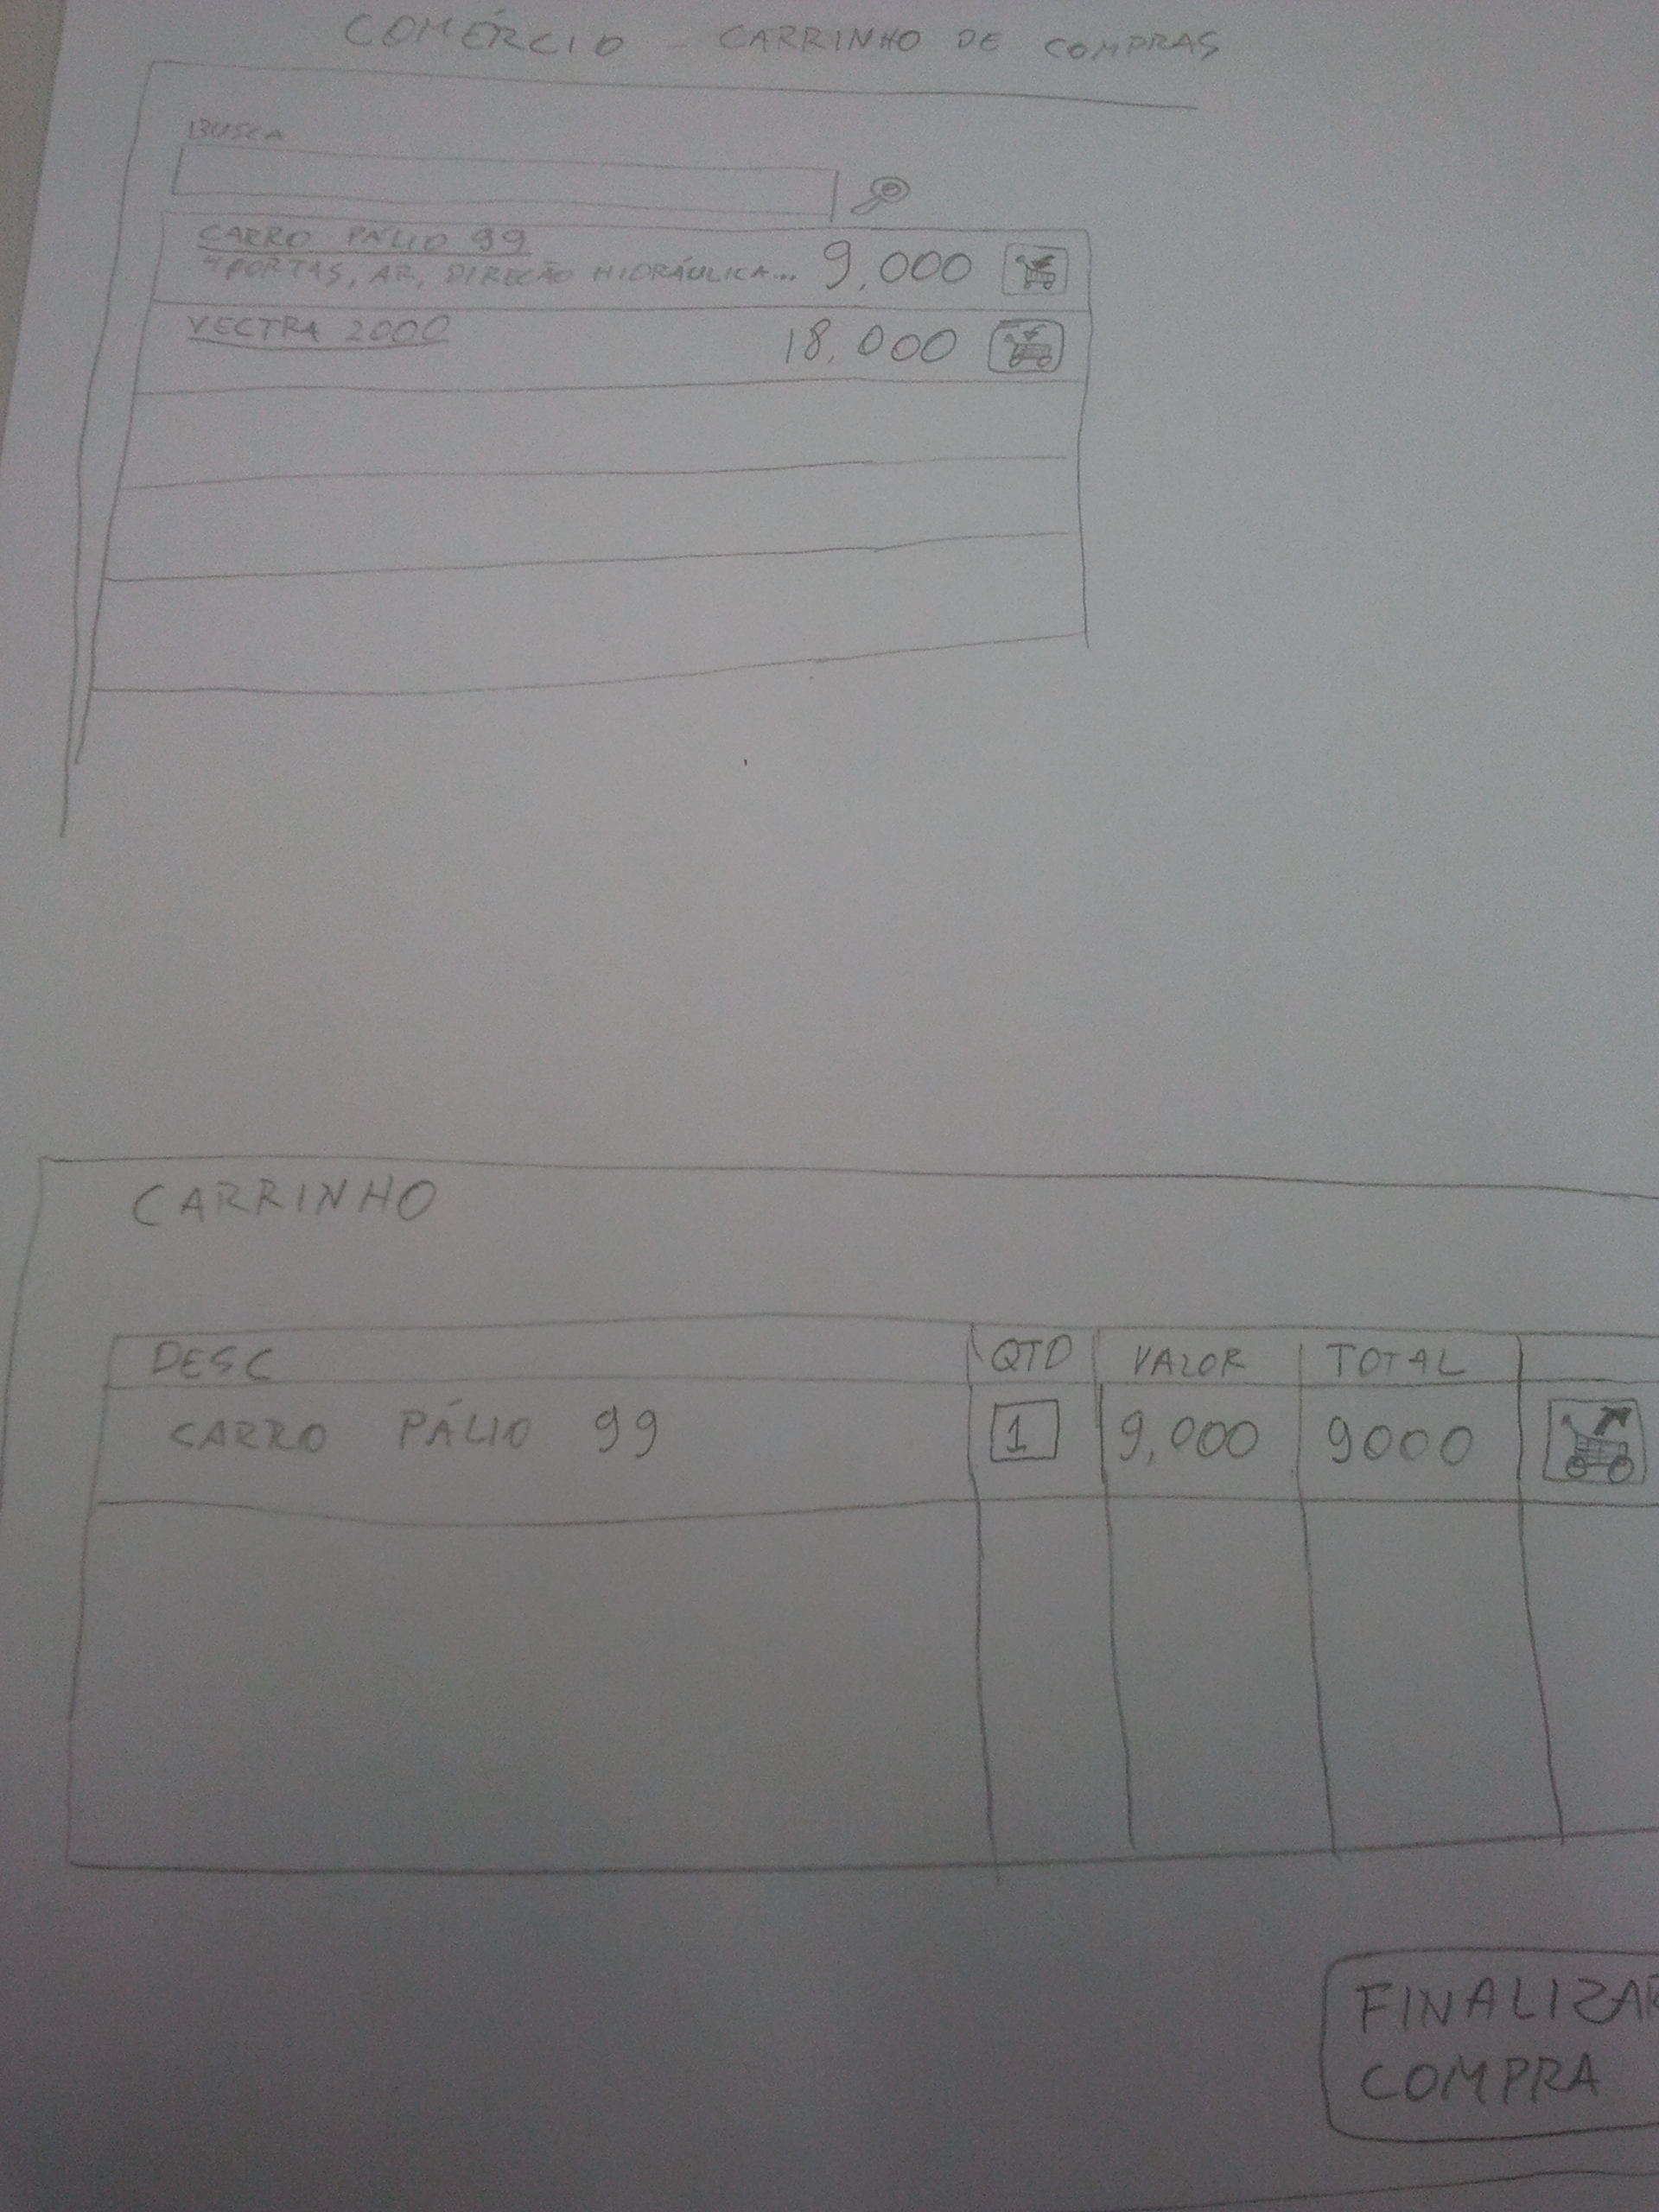 COMÉRCIO - CARRINHO DE COMPRAS
BUSCA
CARRO PÁLIO 99
4 PORTAS, AR, DIREÇÃO HIDRÁULICA... 9,000
VECTRA 2000 18,000
CARRINHO
DESC QTD VALOR TOTAL
CARRO PÁLIO 99 1 9,000 9000
FINALIZAR
COMPRA